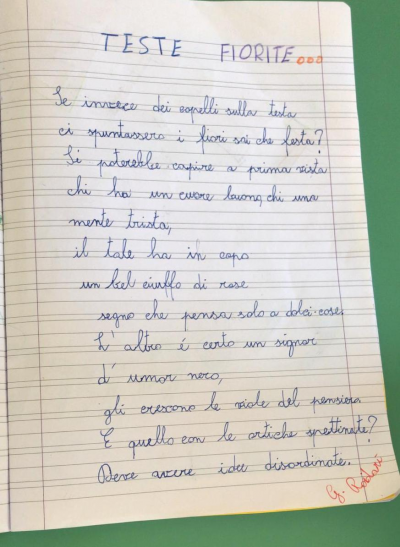 TESTE FIORITE...
Se invece dei capelli sulla testa
ci spuntassero i fiori sai che festa?
Si poterebbe capire a prima vista
chi ha un cuore buono, chi una
mente trista,
il tale ha in capo
un bel ciuffo di rose
segno che pensa solo a dolci cose.
L' altro é certo un signor
d' umor nero,
gli crescono le viole del pensiera
E quello con le ortiche spettinate?
Deve avere idee disordinate.
G. Rodari